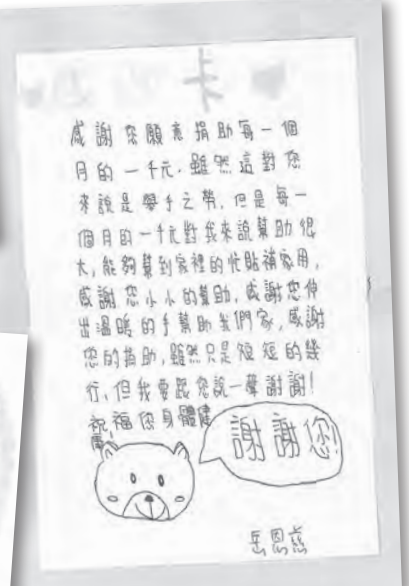 卡
感謝您願意捐助每一個
月的一千元.雖然這對您
來說是舉手之勞,但是每一
個月的一千元對我來說幫助很
大,能夠幫到家裡的忙貼補家用,
感謝您小小的幫助,感謝您伸
出溫暖的手幫助我們家,感謝
您的捐助,雖然只是短短的幾
行,但我要跟您說一聲謝謝!
祝福您身體健
康!
謝謝您!
岳恩慈